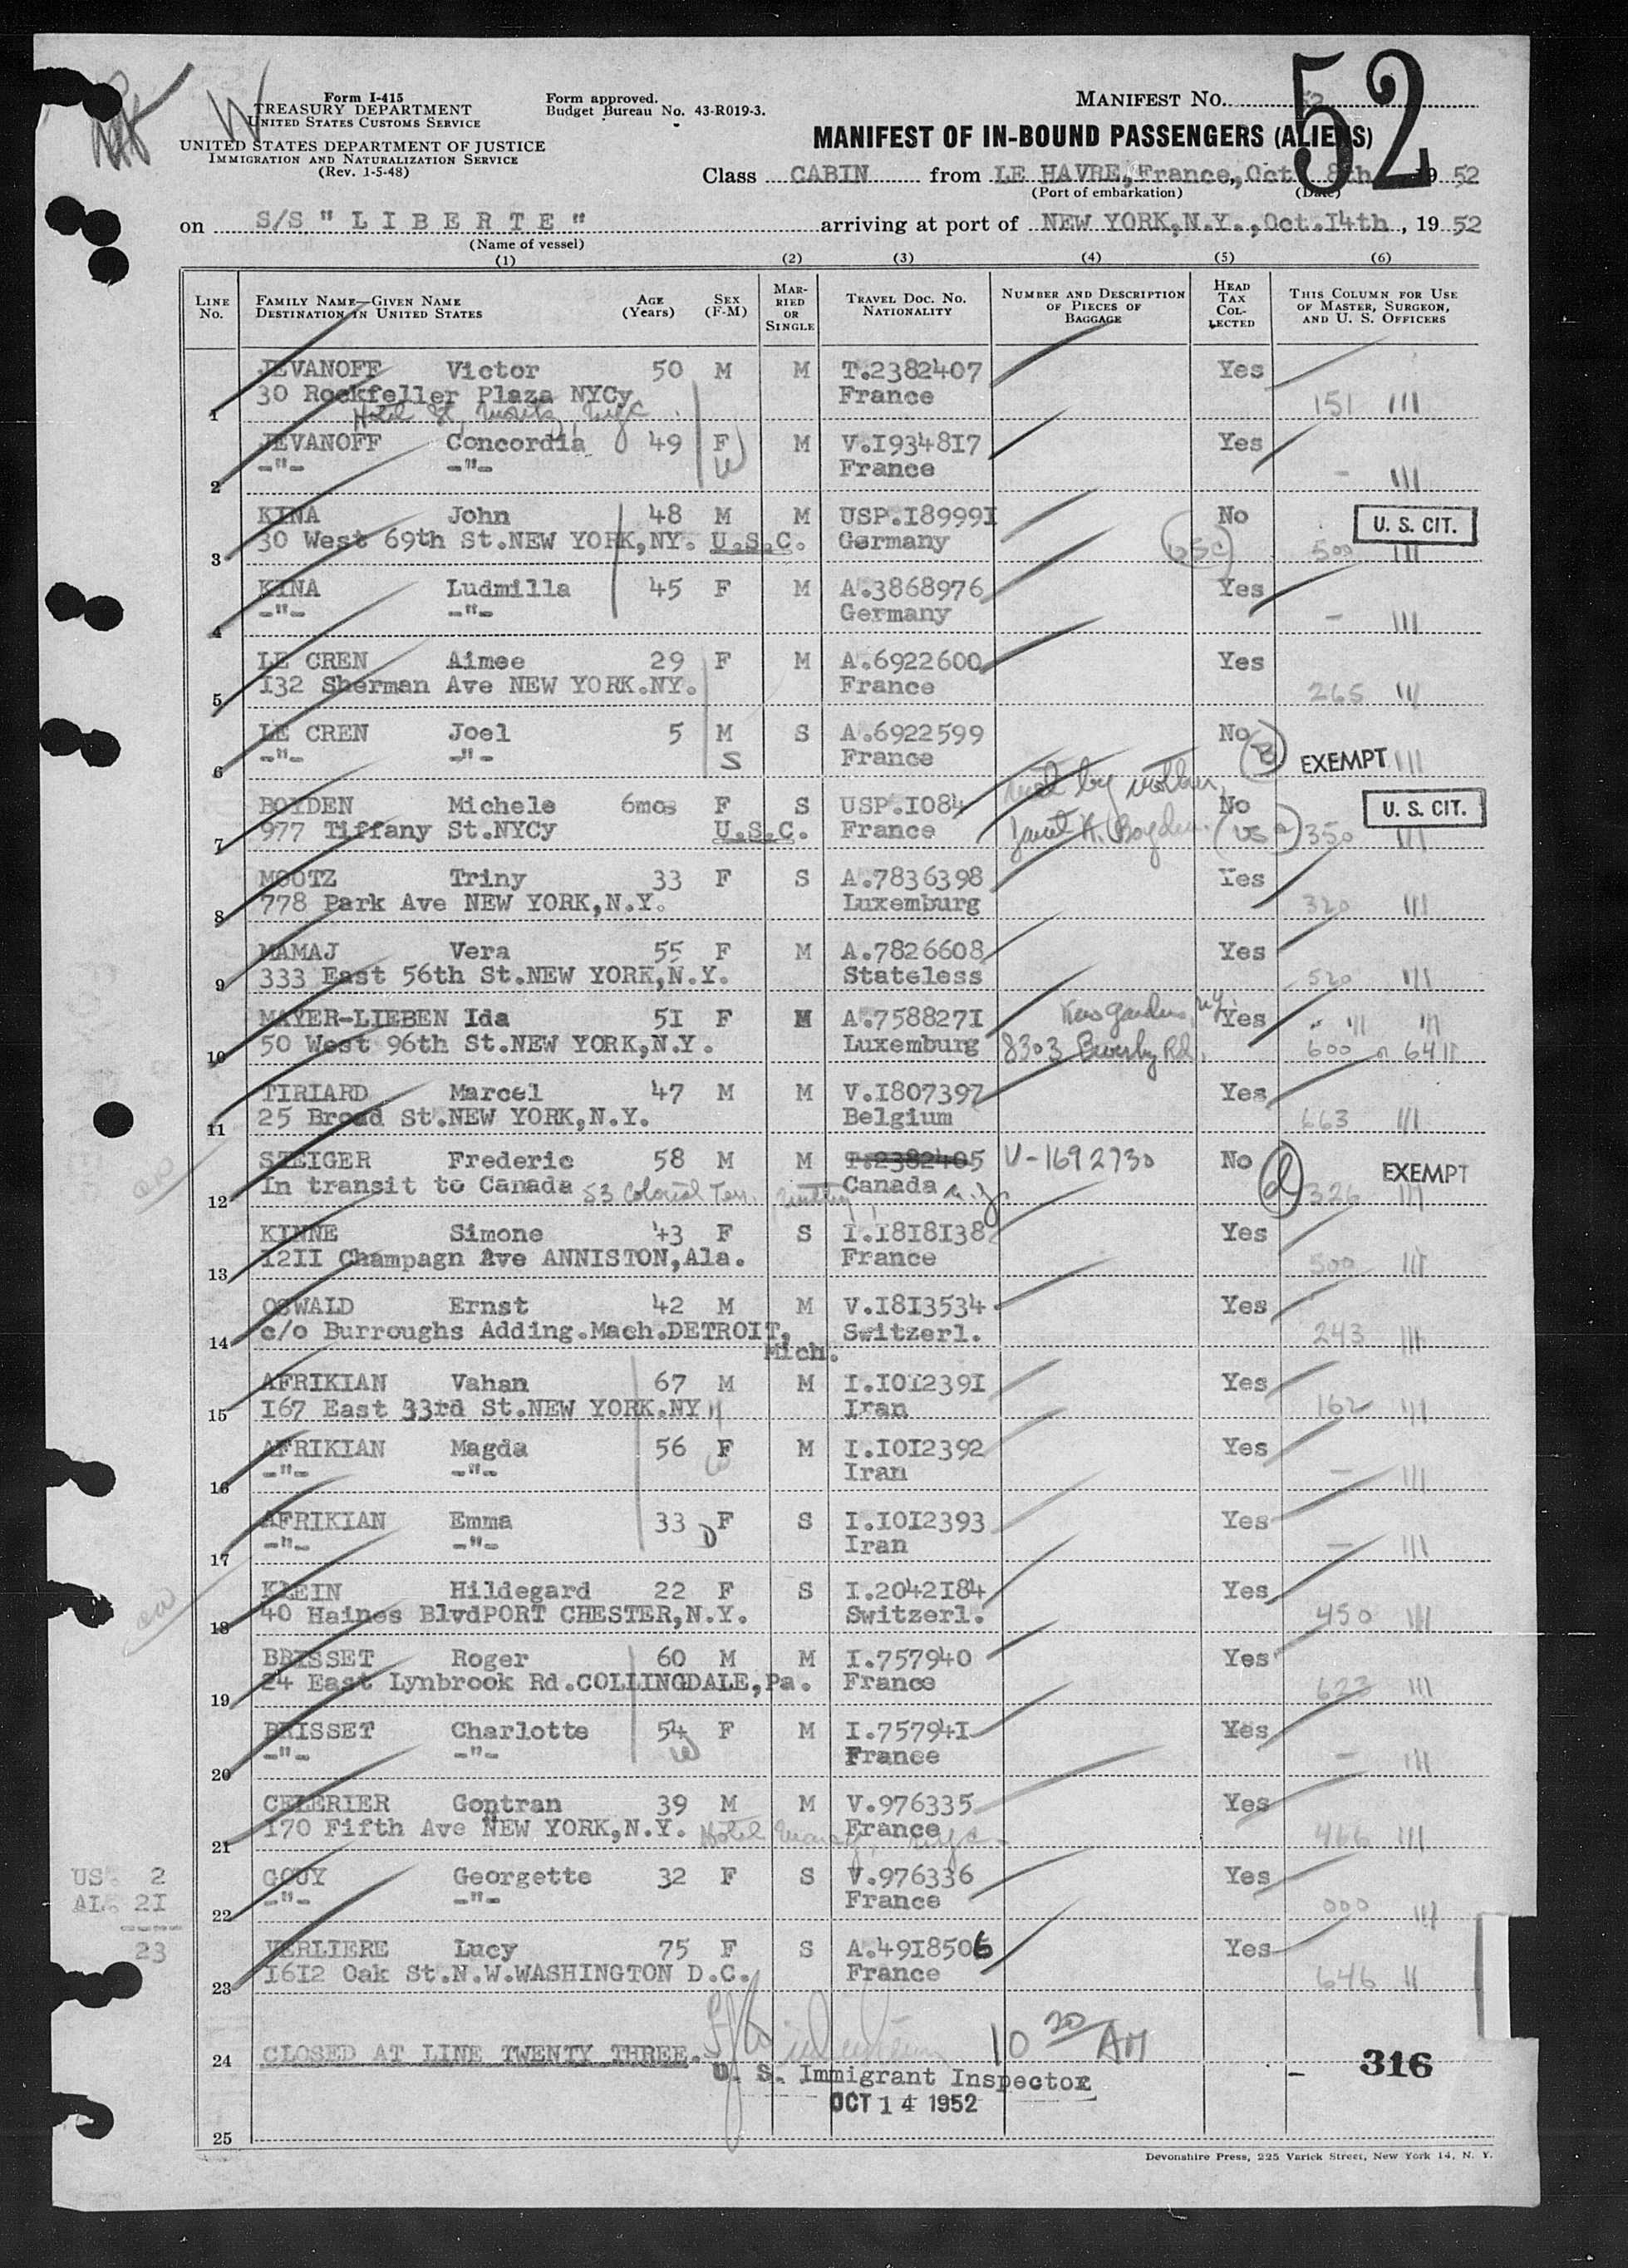 52
Form I-415
TREASURY DEPARTMENT
UNITED STATES CUSTOMS SERVICE
UNITED STATES DEPARTMENT OF JUSTICE
IMMIGRATION AND NATURALIZATION SERVICE
(Rev. 1-5-48)
Form approved.
Budget Bureau No. 43-R019-3.
MANIFEST NO. 52
MANIFEST OF IN-BOUND PASSENGERS (ALIENS)
Class CABIN from LE HAVRE, France, Oct 8th 19 52
(Port of embarkation) (Date)
on S/S " L I B E R T E " arriving at port of NEW YORK,N.Y.,Oct.14th, 19 52
(Name of vessel)
(1) (2) (3) (4) (5) (6)
LINE No. FAMILY NAME—GIVEN NAME DESTINATION IN UNITED STATES AGE (Years) SEX (F-M) MARRIED OR SINGLE TRAVEL DOC. NO. NATIONALITY NUMBER AND DESCRIPTION OF PIECES OF BAGGAGE HEAD TAX COLLECTED THIS COLUMN FOR USE OF MASTER, SURGEON, AND U. S. OFFICERS
JEVANOFF Victor 50 M M T.2382407 Yes
1 30 Rockfeller Plaza NYCy France 151 111
JEVANOFF Concordia 49 F M V.I934817 Yes
2 -"- -"- W France - 111
KINA John 48 M M USP.I8999I No U. S. CIT.
3 30 West 69th St.NEW YORK,NY. U.S.C. Germany USC 500 111
KINA Ludmilla 45 F M A.3868976 Yes
4 -"- -"- Germany - 111
LE CREN Aimee 29 F M A.6922600 Yes
5 I32 Sherman Ave NEW YORK.NY. France 265 111
LE CREN Joel 5 M S A.6922599 No
6 -"- -"- S France EXEMPT 111
BOYDEN Michele 6mos F S USP.I084 met by mother, No U. S. CIT.
7 977 Tiffany St.NYCy U.S.C. France Janet A. Boyden. 350 111
MOOTZ Triny 33 F S A.7836398 Yes
8 778 Park Ave NEW YORK,N.Y. Luxemburg 320 111
MAMAJ Vera 55 F M A.7826608 Yes
9 333 East 56th St.NEW YORK,N.Y. Stateless 520 111
MAYER-LIEBEN Ida 5I F M A.758827I Kew Gardens, N.Y. Yes
10 50 West 96th St.NEW YORK,N.Y. Luxemburg 8303 Beverly Rd. 600
TIRIARD Marcel 47 M M V.I807397 Yes
11 25 Broad St.NEW YORK,N.Y. Belgium 663 111
STEIGER Frederic 58 M M T.2382405 V-1692730 No EXEMPT
12 In transit to Canada 53 Colonial Terr. Nutley Canada N.J. 326 111
KINNE Simone 43 F S I.I8I8I38 Yes
13 I2II Champagn Ave ANNISTON,Ala. France 500 111
OSWALD Ernst 42 M M V.I8I3534 Yes
14 c/o Burroughs Adding.Mach.DETROIT, Mich. Switzerl. 243 111
AFRIKIAN Vahan 67 M M I.I0I239I Yes
15 I67 East 33rd St.NEW YORK.NY Iran 162 111
AFRIKIAN Magda 56 F M I.I0I2392 Yes
16 -"- -"- W Iran - 111
AFRIKIAN Emma 33 D F S I.I0I2393 Yes
17 -"- -"- Iran - 111
KLEIN Hildegard 22 F S I.2042I84 Yes
18 40 Haines BlvdPORT CHESTER,N.Y. Switzerl. 450 111
BRISSET Roger 60 M M I.757940 Yes
19 24 East Lynbrook Rd.COLLINGDALE,Pa. France 623 111
BRISSET Charlotte 54 F M I.75794I Yes
20 -"- -"- W France - 111
CELERIER Gontran 39 M M V.976335 Yes
21 I70 Fifth Ave NEW YORK,N.Y. Hotel France 466 111
GOUY Georgette 32 F S V.976336 Yes
22 -"- -"- France 000 111
US. 2
AL. 2I
----
23
VERLIERE Lucy 75 F S A.4918506 Yes
23 I6I2 Oak St.N.W.WASHINGTON D.C. France 646 11
10 20 AM
24 CLOSED AT LINE TWENTY THREE. - 316
U. S. Immigrant Inspector
OCT 14 1952
25
Devonshire Press, 225 Varick Street, New York 14, N. Y.